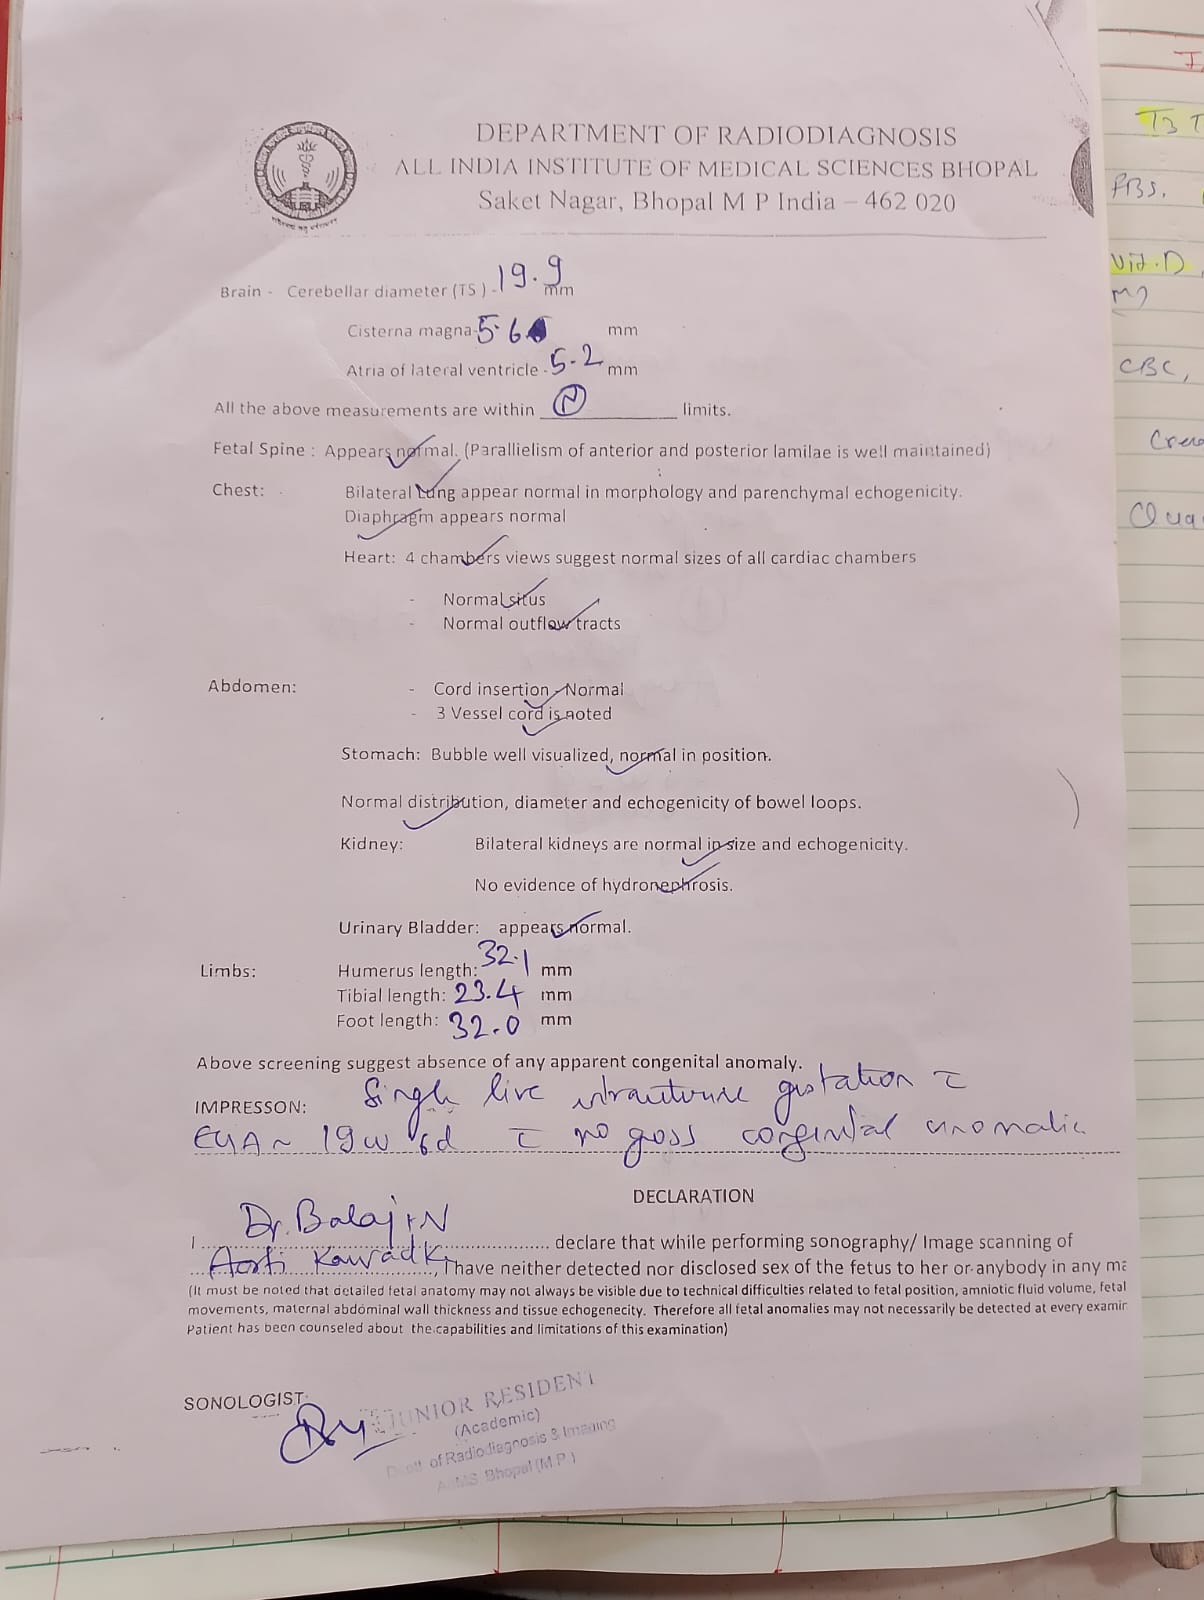 DEPARTMENT OF RADIODIAGNOSIS
ALL INDIA INSTITUTE OF MEDICAL SCIENCES BHOPAL
Saket Nagar, Bhopal M P India – 462 020
Brain - Cerebellar diameter (TS) - 19.9 mm
Cisterna magna- 5.6 mm
Atria of lateral ventricle - 5.2 mm
All the above measurements are within N limits.
Fetal Spine : Appears normal. (Parallielism of anterior and posterior lamilae is well maintained)
Chest: Bilateral Lung appear normal in morphology and parenchymal echogenicity.
Diaphragm appears normal
Heart: 4 chambers views suggest normal sizes of all cardiac chambers
- Normal situs
- Normal outflow tracts
Abdomen: - Cord insertion - Normal
- 3 Vessel cord is noted
Stomach: Bubble well visualized, normal in position.
Normal distribution, diameter and echogenicity of bowel loops.
Kidney: Bilateral kidneys are normal in size and echogenicity.
No evidence of hydronephrosis.
Urinary Bladder: appears normal.
Limbs: Humerus length: 32.1 mm
Tibial length: 23.4 mm
Foot length: 32.0 mm
Above screening suggest absence of any apparent congenital anomaly.
IMPRESSON: Single live intrauterine gestation c̄
EGA ~ 19w 6d c̄ no gross congenital anomalie
DECLARATION
I Dr. Balaji N declare that while performing sonography/ Image scanning of
Aarti, I have neither detected nor disclosed sex of the fetus to her or anybody in any ma
(It must be noted that detailed fetal anatomy may not always be visible due to technical difficulties related to fetal position, amniotic fluid volume, fetal
movements, maternal abdominal wall thickness and tissue echogenecity. Therefore all fetal anomalies may not necessarily be detected at every examin
Patient has been counseled about the capabilities and limitations of this examination)
SONOLOGIST
JUNIOR RESIDENT
(Academic)
Deptt of Radiodiagnosis & Imaging
AIIMS Bhopal (M.P.)
T3 T
PBS,
Vit.D,
CBC,